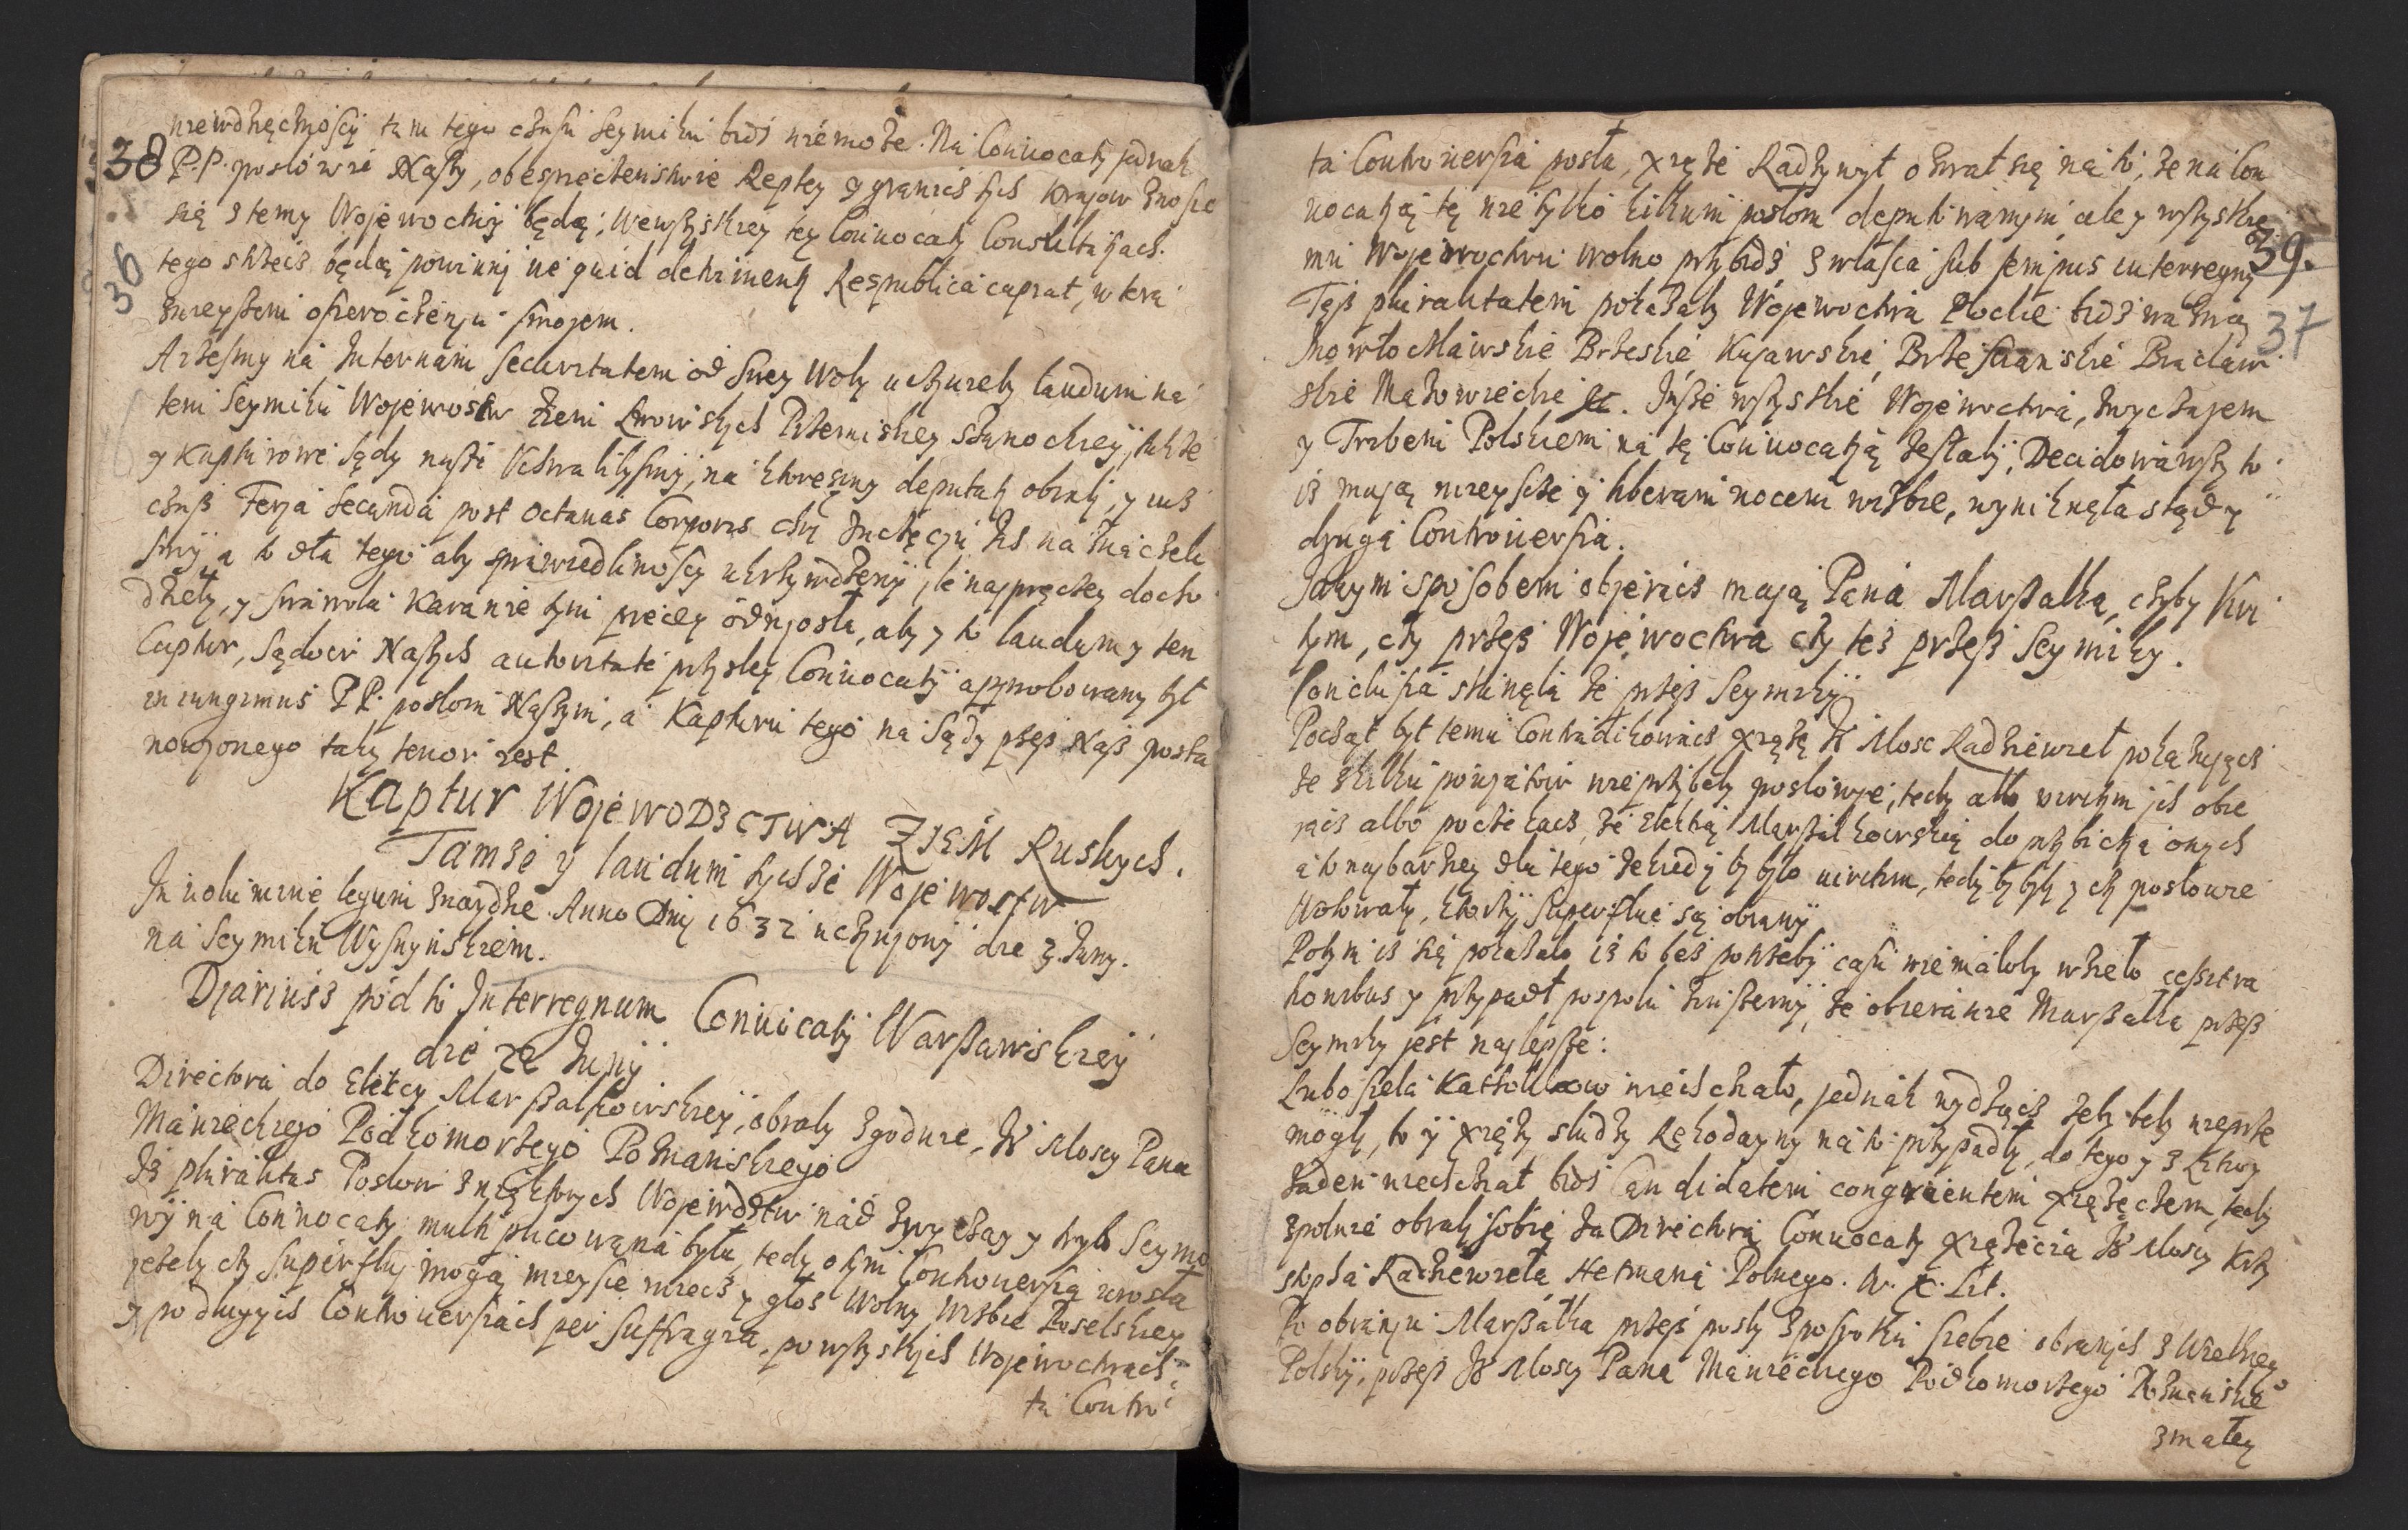 38
36
niewdzięcznoscy tam tego czasu seymiku bidź niemoże. Na Conuocaty jednak
P.P. posłowie Naszy, obespieczenstwie Reptey y granicz tych krajow znosic
się s temy Wojewoctwy będą; we wszyskiey tey Conuocaty Consultatjach.
tego strzeis będąj powinnj ne quid detrimenty Respublica capiat, w tera
znieyszem osieroczenju swojem.
A żesmy na Internam securitatem od swey Woly uczyniely laudum na
tem Seymiku Wojewostw Ziem Lwowskych Przemiskey Sanockieyj, takze
y kapturowe sądy nasze Uchwalilysmyj, na ktoresmy deputaty obralj, y ius
czasz Ferja secunda post octauas Corporis Chri Inchęciu Ks na znaczely
smyj a to dla tego aby sprawiedliwoscy ukrzywdzenyj, jle najpręczey docho
dzely, y swawola karanie tym pręcey odnjosła, aby y to laudum y ten
Captur, sądow Naszych autoritate przysley Conuocatyj approbowany był
in iungimus P.P. posłom Naszym, a kapturu tego na Sądy przesz Nasz posta
nowjonego taky tenor iest.
Kaptur WojeWODZCTWA ZIEM Ruskych.
Tamże y laudum tychże Wojewostw
In uolumine legum znaydzie. Anno Dnj 1632 uczynjonyj die 3. Juny.
na Seymiku Wysnynskiem.
Djariusz pod to Interregnum Conuocatyj Warszawskieyj
die 22 Junyj
Directora do Elekcy Marszałkowskieyj, obraly zgodnie, Je Moscy Pana
Manieckiego Podkomorzego Poznanskiego
Iż pluralitas Posłow z niektorych Wojewodztw nad zwyczay y tryb Seymo
wyj na Conuocaty multiplicowana była, tedy o tym Contouersia urosła
jeżely cy superfluj mogą mieysce miecz y głos wolny w izbie Poselskiey
y po długych Controuersiach per suffragia, po wszyskych Wojewoctwach
ta Contro
39.
37
ta Controuersia posła, xiąże Radzywył ozwał się na to, że na Con
uocatją tę nie tylko kilkum posłom deputowanym, ale y wszyskie
mu Wojewoctwu wolno przybidź zwlasca sub tempus interregny
Tęsz pluralitatem pokazały Wojewoctwa Płockie bidź ważną
Inowłocławskie Brzeskie, Kujawskie, Brzescianskie Bracław
skie Mazowieckie &c. Insze wszyskie Wojewoctwa, zwyczajem
y Tribem Polskiem na tę Conuocatją zesłalyj, Decidowawszy to
iż mają mieysce y liberam vocem w izbie, wyniknęła stąd y
druga Controuersia.
Jakym sposobem objeracs mają Pana Marszałka, czyby Kri
tym, cży przesz Wojewoctwa cży też przesz Seymiky.
Conclusia stanęła że przesz Seymikyj
Począł był temu Contradikowacs xiążę Je Mosc Radziewieł pokazujęcs
że s kilku powjatow nie przybely posłowje, tedy albo uiritim jch obie
racs albo poczekacs, że Elekcją Marszałkowską do przybicja onych
a to najbarziey dla tego że kiedj by było uiritim, tedj by byly y cy posłowie
Wotowaly, ktorzyj superflue są obranyj
Potym is się pokazało iż to bes potrzebyj casu niemałoby wzieło cessit ra
tionibus y przypadł pospołu znisztemyj, że obieranie Marszałka przesz
Seymiky jest najlepsze:
Lubo siela Katholikow niechchało, jednak wydząc żeby bely nieprze
mogly, to y xięży słudzy Rekodayny na to przypadly, do tego y z Litwy
żaden niechchał bidź Candidatem congruentem xiążęczem, tedy
społnie obraly sobie za Directora Conuocaty xiążęcia Je Moscy Krzy
sztopha Radziewieła Hetmana Polnego. W. X. Lit.
Po obranju Marszałka przesz posły z posrotku siebie obranych z Wielkiey
Polskyj, przesz Je Moscy Pana Manieckiego Podkomorzego Poznanskiego
z małey